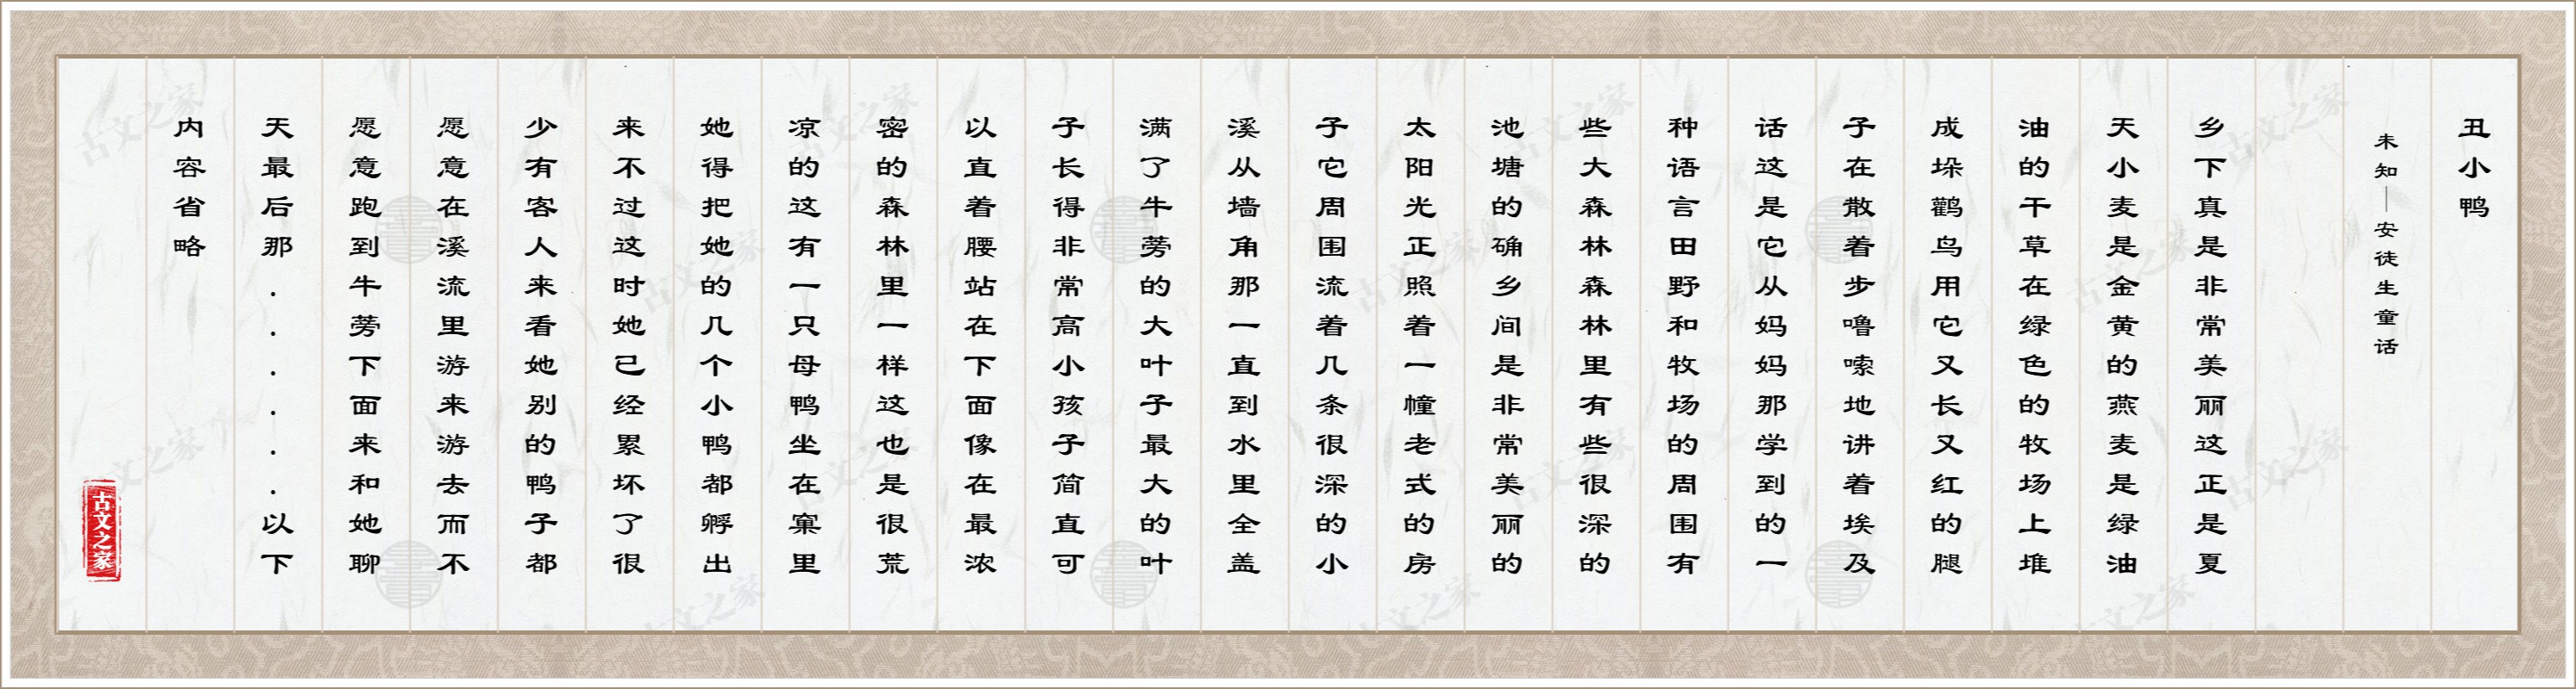 丑小鸭
未知——安徒生童话
乡下真是非常美丽这正是夏
天小麦是金黄的燕麦是绿油
油的干草在绿色的牧场上堆
成垛鹳鸟用它又长又红的腿
子在散着步噜嗦地讲着埃及
话这是它从妈妈那学到的一
种语言田野和牧场的周围有
些大森林森林里有些很深的
池塘的确乡间是非常美丽的
太阳光正照着一幢老式的房
子它周围流着几条很深的小
溪从墙角那一直到水里全盖
满了牛蒡的大叶子最大的叶
子长得非常高小孩子简直可
以直着腰站在下面像在最浓
密的森林里一样这也是很荒
凉的这有一只母鸭坐在窠里
她得把她的几个小鸭都孵出
来不过这时她已经累坏了很
少有客人来看她别的鸭子都
愿意在溪流里游来游去而不
愿意跑到牛蒡下面来和她聊
天最后那......以下
内容省略
古文之家